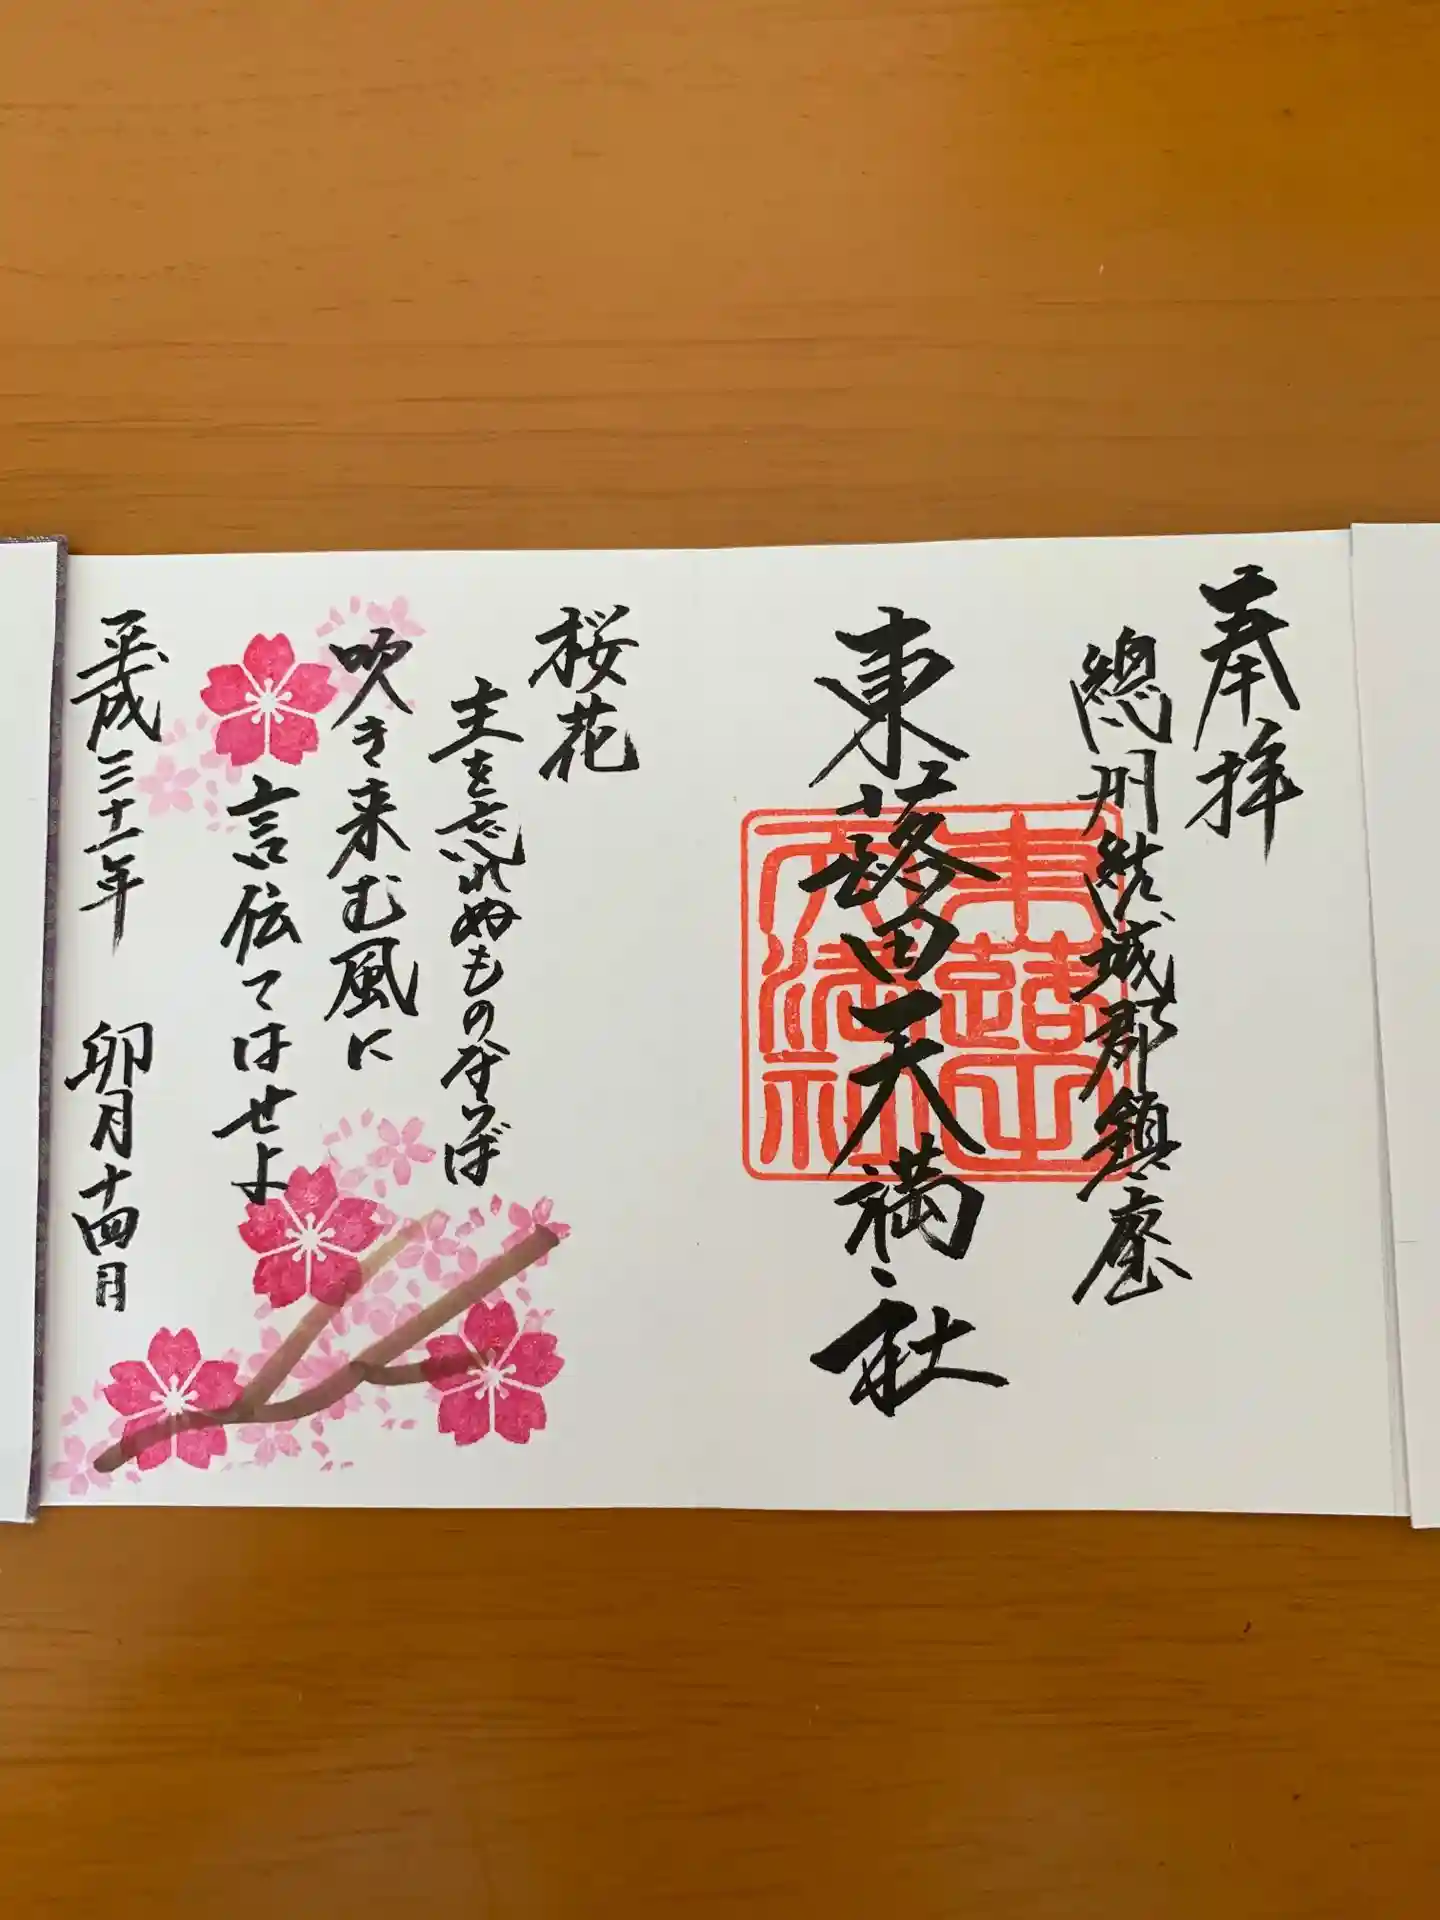 奉拝
總州結城郡鎮座
東蕗田天満社
桜花
主を忘れぬものならば
吹き来む風に
言伝てはせよ
平成三十一年 卯月十四日
東蕗田天満社